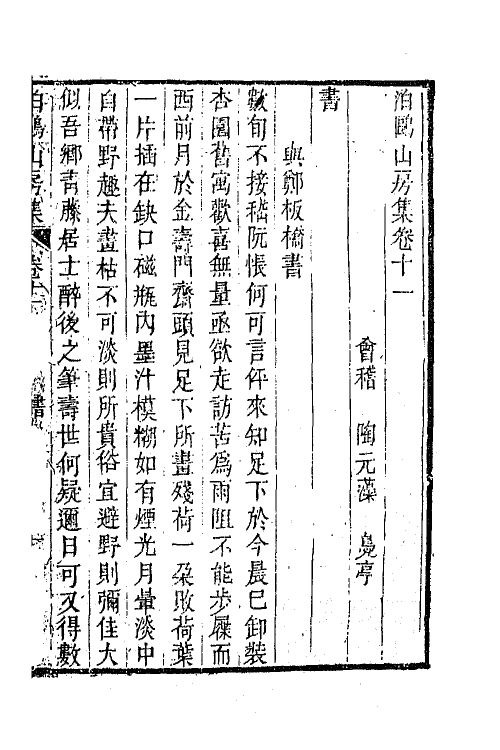 泊鷗山房集卷十一
會稽　陶元藻　鳧亭
書
與鄭板橋書
數旬不接嵇阮悵何可言伻來知足下於今晨已卸裝
杏園舊寓歡喜無量亟欲走訪苦爲雨阻不能步屧而
西前月於金壽門齋頭見足下所畫殘荷一朶敗荷葉
一片插在缺口磁瓶內墨汁模糊如有煙光月暈淡中
自帶野趣夫畫枯不可淡則所貴俗宜避野則彌佳大
似吾鄉靑藤居士醉後之筆壽世何疑邇日可又得數
泊鷗山房集
卷十一
書